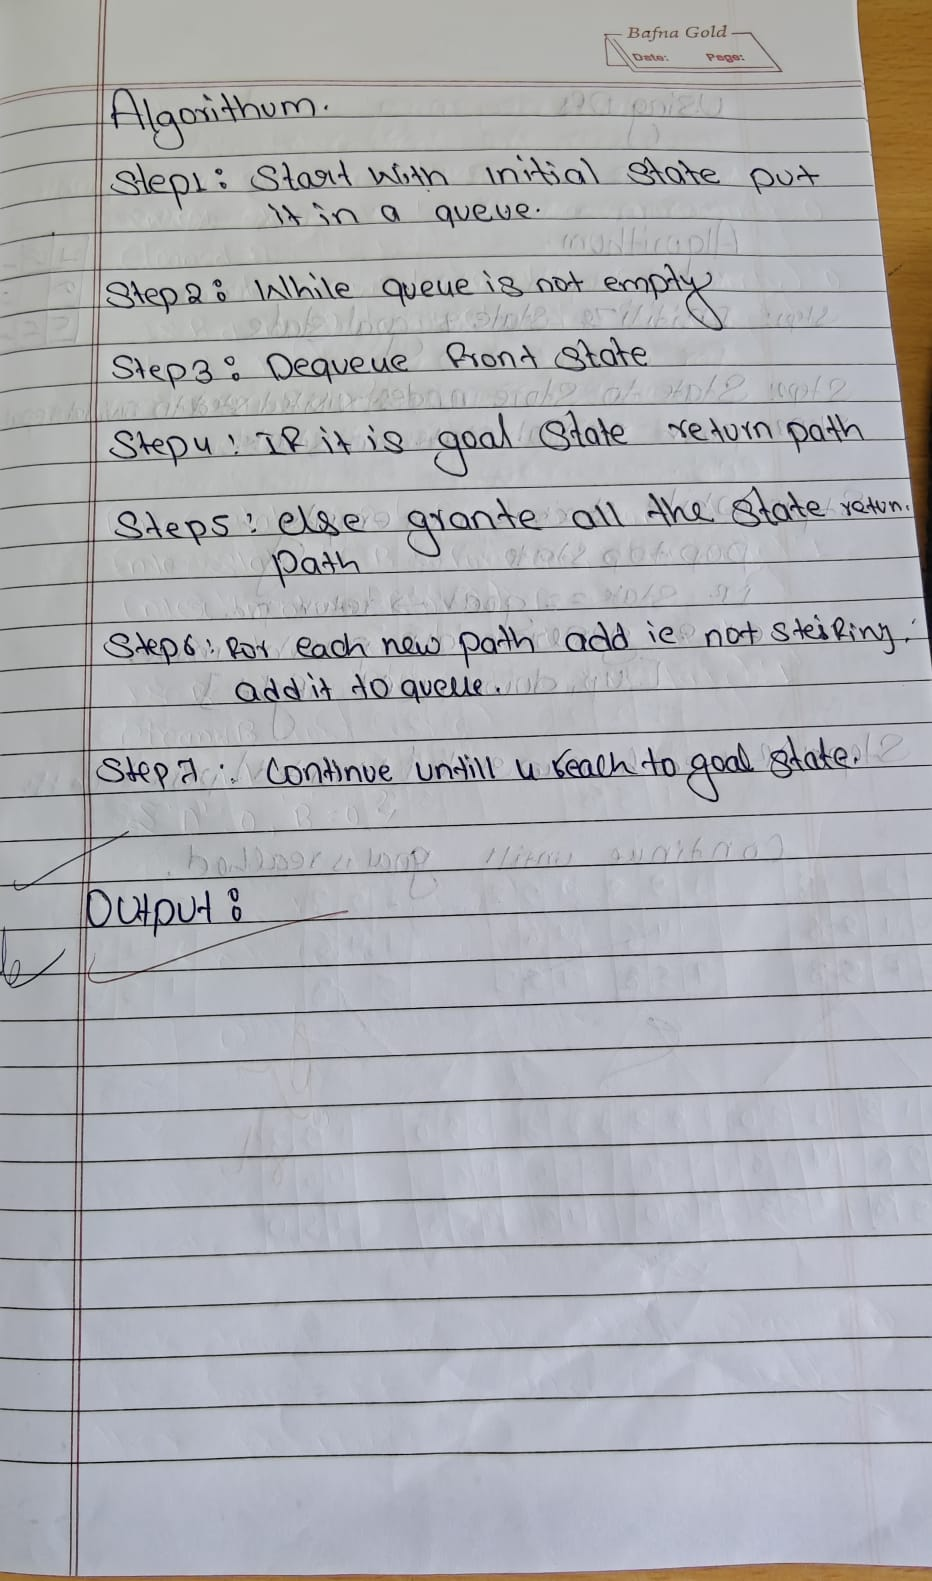 Bafna Gold
Date: Page:
Algorithum.
Step1: Start with initial state put
it in a queue.
Step2: While queue is not empty
Step3: Dequeue front state
Step4: If it is goal state return path
Step5: else grante all the state retun.
path
Step6: for each new path add ie not
add it to queue.
Step7: Continue untill u reach to goal state.
Output: